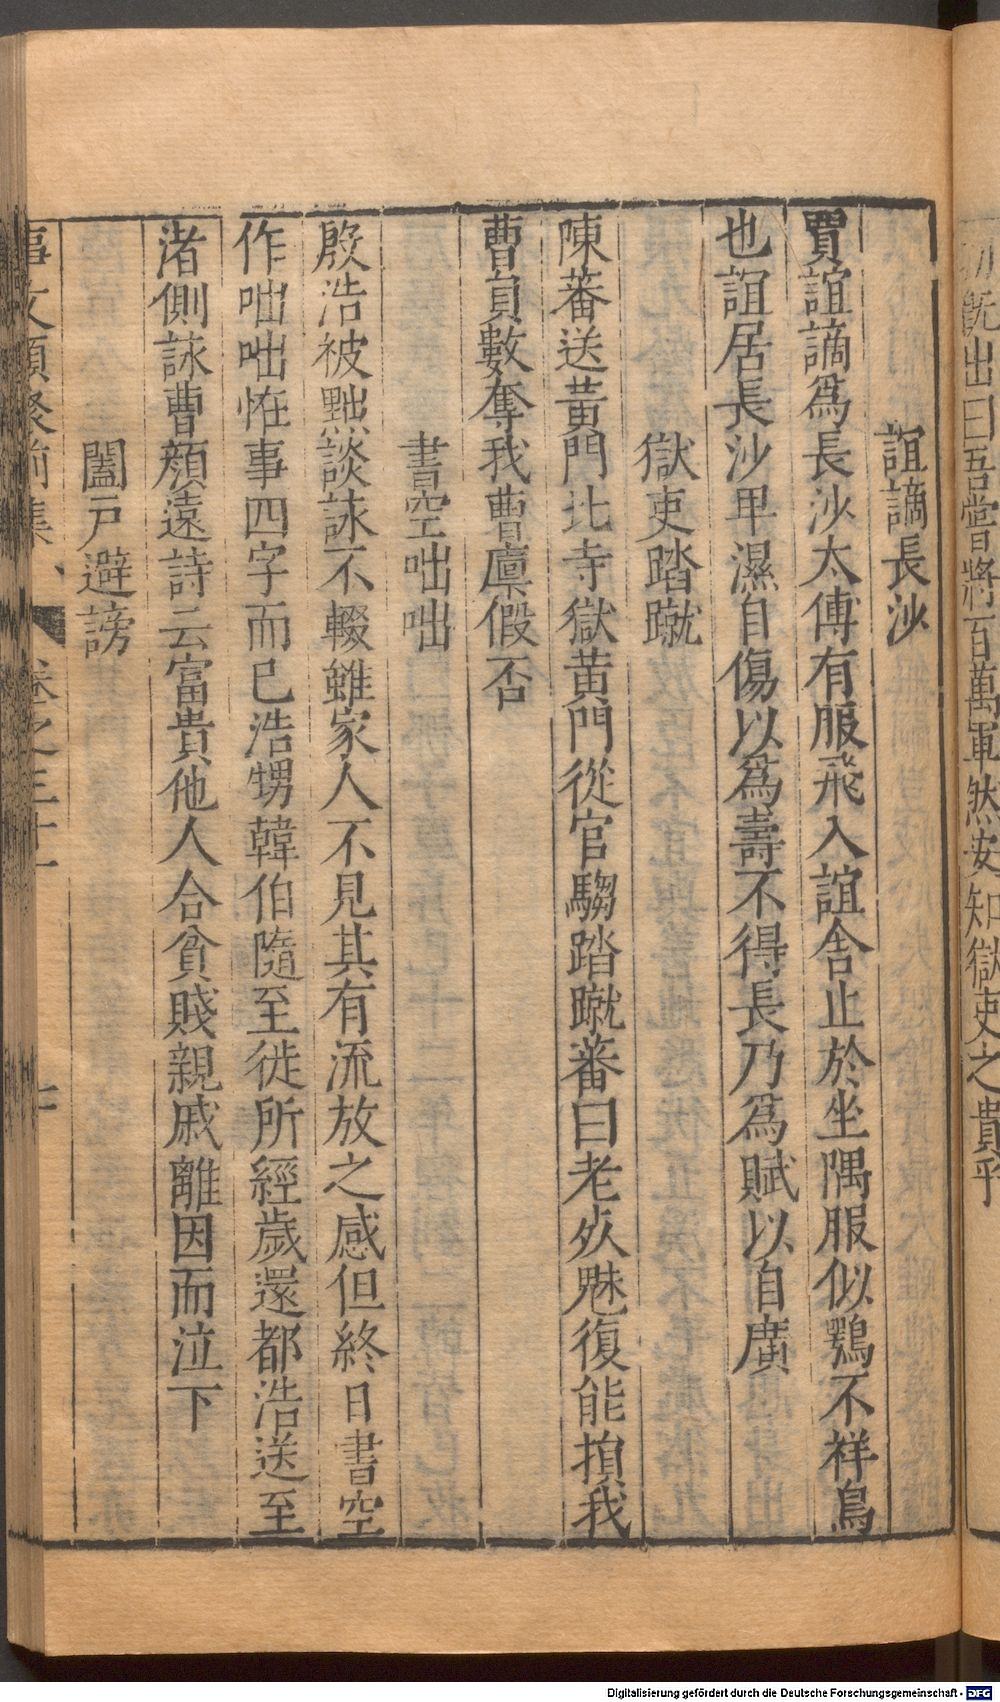 初既出曰吾嘗將百萬軍然安知獄吏之貴乎
誼謫長沙
賈誼謫為長沙太傅有服飛入誼舍止於坐隅服似鴞不祥鳥
也誼居長沙卑濕自傷以為壽不得長乃為賦以自廣
獄吏踏蹴
陳蕃送黃門北寺獄黃門從官騶踏蹴蕃曰老死魅復能損我
曹員數奪我曹廩假否
書空咄咄
殷浩被黜談詠不輟雖家人不見其有流放之感但終日書空
作咄咄怪事四字而已浩甥韓伯隨至徙所經歲還都浩送至
渚側詠曹顔遠詩云富貴他人合貧賤親戚離因而泣下
闔戸避謗
事文類聚前集 卷之三十一 七
Digitalisierung gefördert durch die Deutsche Forschungsgemeinschaft - DFG